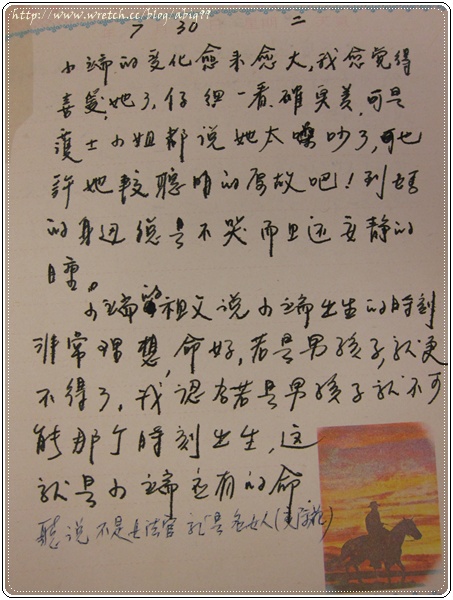 http://www.wretch.cc/blog/abig99
7 30 二
小瑞的变化愈来愈大,我愈觉得
喜爱她了,仔细一看、確实美,可是
護士小姐都说她太嘈吵了,也
許她較聪明的原故吧!到妈
的身边總是不哭而且还安静的
睡。
小瑞祖父说小瑞出生的時刻
非常理想,命好,若是男孩子,就更
不得了,我認為若是男孩子就不可
能那个時刻出生,这
就是小瑞应有的命
聽说不是是法官就是名女人